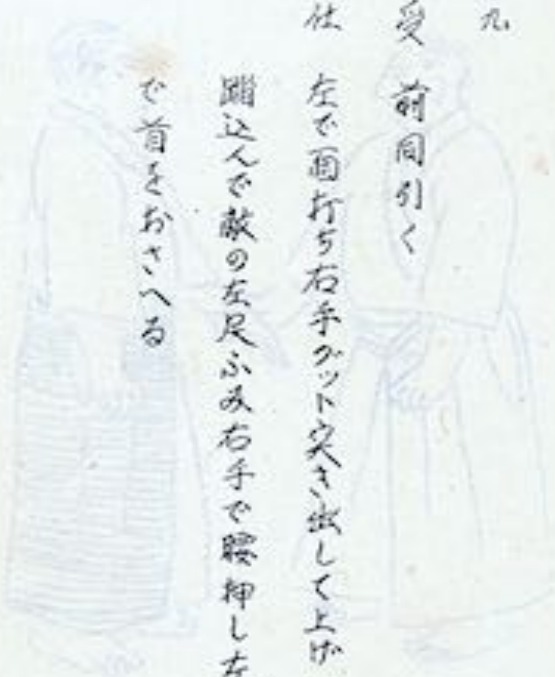 九
受 前同引く
仕 左で面打ち右手グット突き出して上げ
踏込んで敵の左足ふみ右手で腰押し左
で首をおさへる